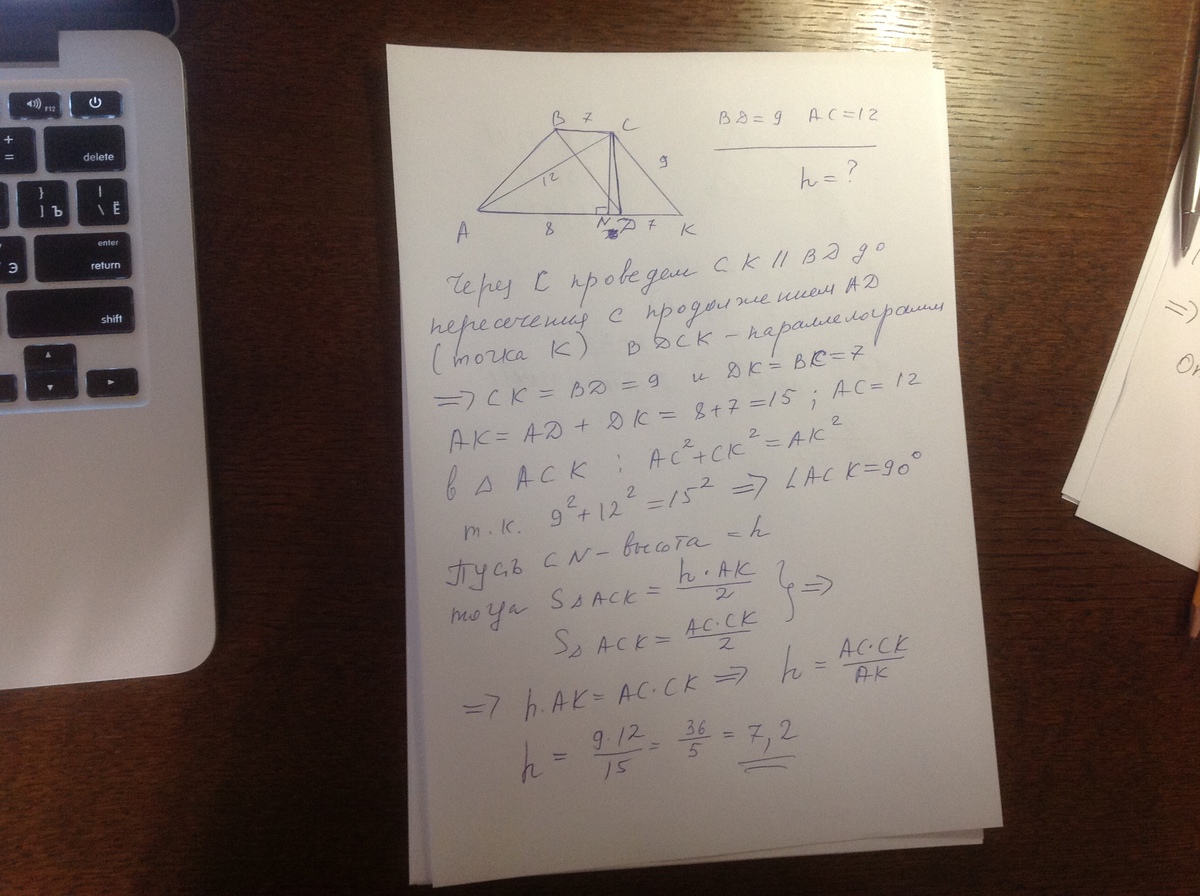 F12
+
=
delete
}
] Ъ
|
\ Ё
Э
enter
return
shift
B 7 C
BD = 9 AC = 12
9
12
h = ?
A 8 N D 7 K
Через C проведем CK || BD до
пересечения с продолжением AD
(точка K) BDCK - параллелограмм
=> CK = BD = 9 и DK = BC = 7
AK = AD + DK = 8+7 = 15 ; AC = 12
в △ ACK : AC² + CK² = AK²
т.к. 9² + 12² = 15² => ∠ACK = 90°
Пусть CN - высота = h
тогда S△ACK = h·AK/2 } =>
S△ACK = AC·CK/2
=> h·AK = AC·CK => h = AC·CK/AK
h = 9·12/15 = 36/5 = 7,2
=>
От